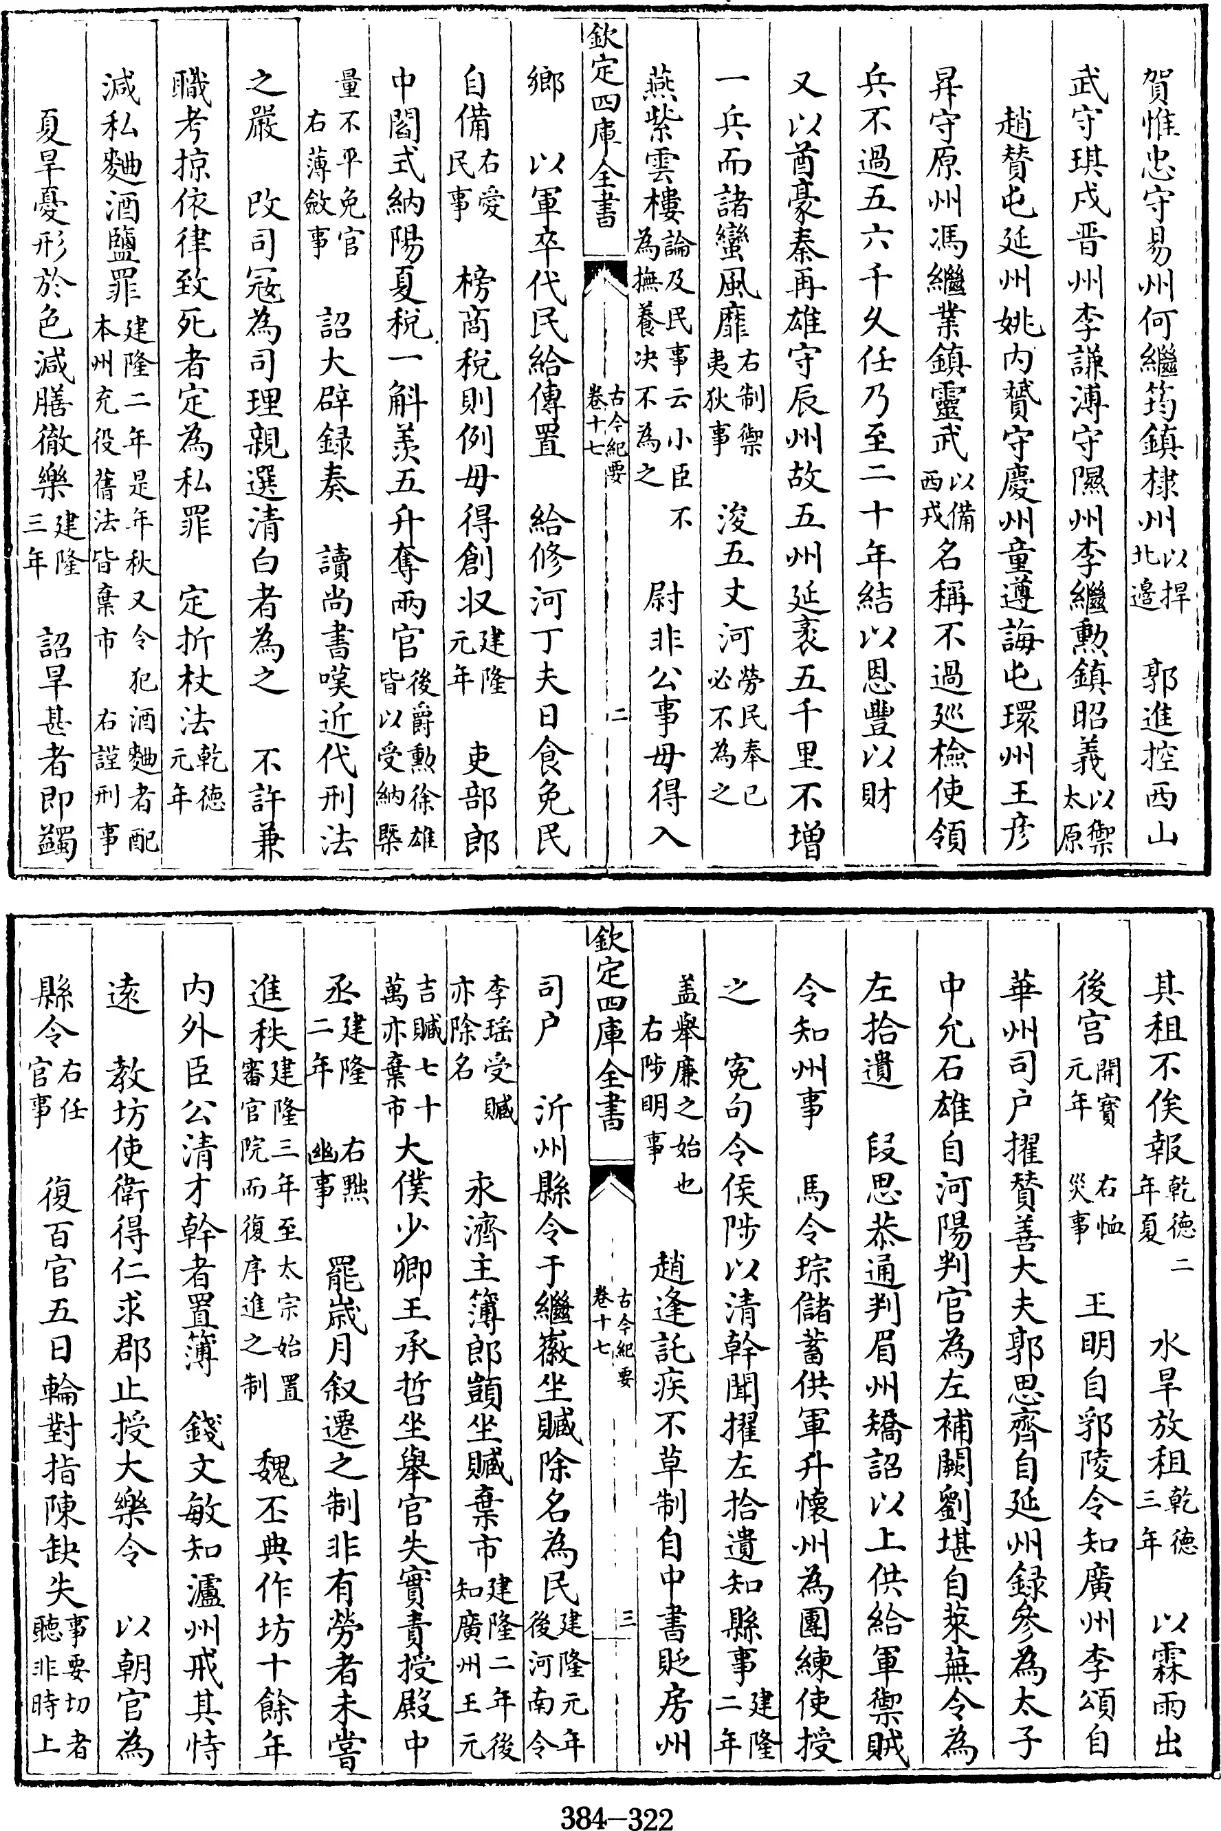 賀惟忠守易州何繼筠鎮棣州以捍北邉　郭進控西山
武守琪戍晉州李謙溥守隰州李繼勲鎮昭義以禦太原
趙贊屯延州姚内贇守慶州童遵誨屯環州王彦
昇守原州馮繼業鎮靈武以備西戎名稱不過廵檢使領
兵不過五六千久任乃至二十年結以恩豐以財
又以酋豪秦再雄守辰州故五州延袤五千里不增
一兵而諸蠻風靡右制禦夷狄事　浚五丈河勞民奉已必不為之
燕紫雲樓論及民事云小臣不為撫養决不為之　尉非公事毋得入
欽定四庫全書　古今紀要卷十七　二
鄉　以軍卒代民給傳置　給修河丁夫日食免民
自備右愛民事　榜商税則例毋得創収建隆元年　吏部郎
中閻式納陽夏税一斛羨五升奪兩官後爵勲徐雄皆以受納槩
量不平免官右薄斂事　詔大辟録奏　讀尚書嘆近代刑法
之嚴　改司冦為司理親選清白者為之　不許兼
職考掠依律致死者定為私罪　定折杖法乾德元年
減私麯酒鹽罪建隆二年是年秋又令犯酒麯者配本州充役舊法皆棄市　右謹刑事
夏旱憂形於色減膳徹樂建隆三年　詔旱甚者即蠲
其租不俟報乾德二年夏　水旱放租乾德三年　以霖雨出
後宫開寳元年　右恤災事　王明自郢陵令知廣州李頌自
華州司户擢贊善大夫郭思齊自延州録參為太子
中允石雄自河陽判官為左補闕劉堪自萊蕪令為
左拾遺　段思恭通判眉州矯詔以上供給軍禦賊
令知州事　馬令琮儲蓄供軍升懷州為團練使授
之　寃句令侯陟以清幹聞擢左拾遺知縣事建隆二年
盖舉廉之始也右陟明事　趙逢託疾不草制自中書貶房州
欽定四庫全書　古今紀要卷十七　三
司户　沂州縣令于繼徽坐贓除名為民建隆元年後河南令
李瑶受贓亦除名　永濟主簿郎顗坐贓棄市建隆二年後知廣州王元
吉贓七十萬亦棄市大僕少卿王承哲坐舉官失實責授殿中
丞建隆二年　右黜幽事　罷嵗月叙遷之制非有勞者未嘗
進秩建隆三年至太宗始置審官院而復序進之制　魏丕典作坊十餘年
内外臣公清才幹者置簿　錢文敏知瀘州戒其恃
遠　教坊使衛得仁求郡止授大樂令　以朝官為
縣令右任官事　復百官五日輪對指陳缺失事要切者聽非時上
384-322